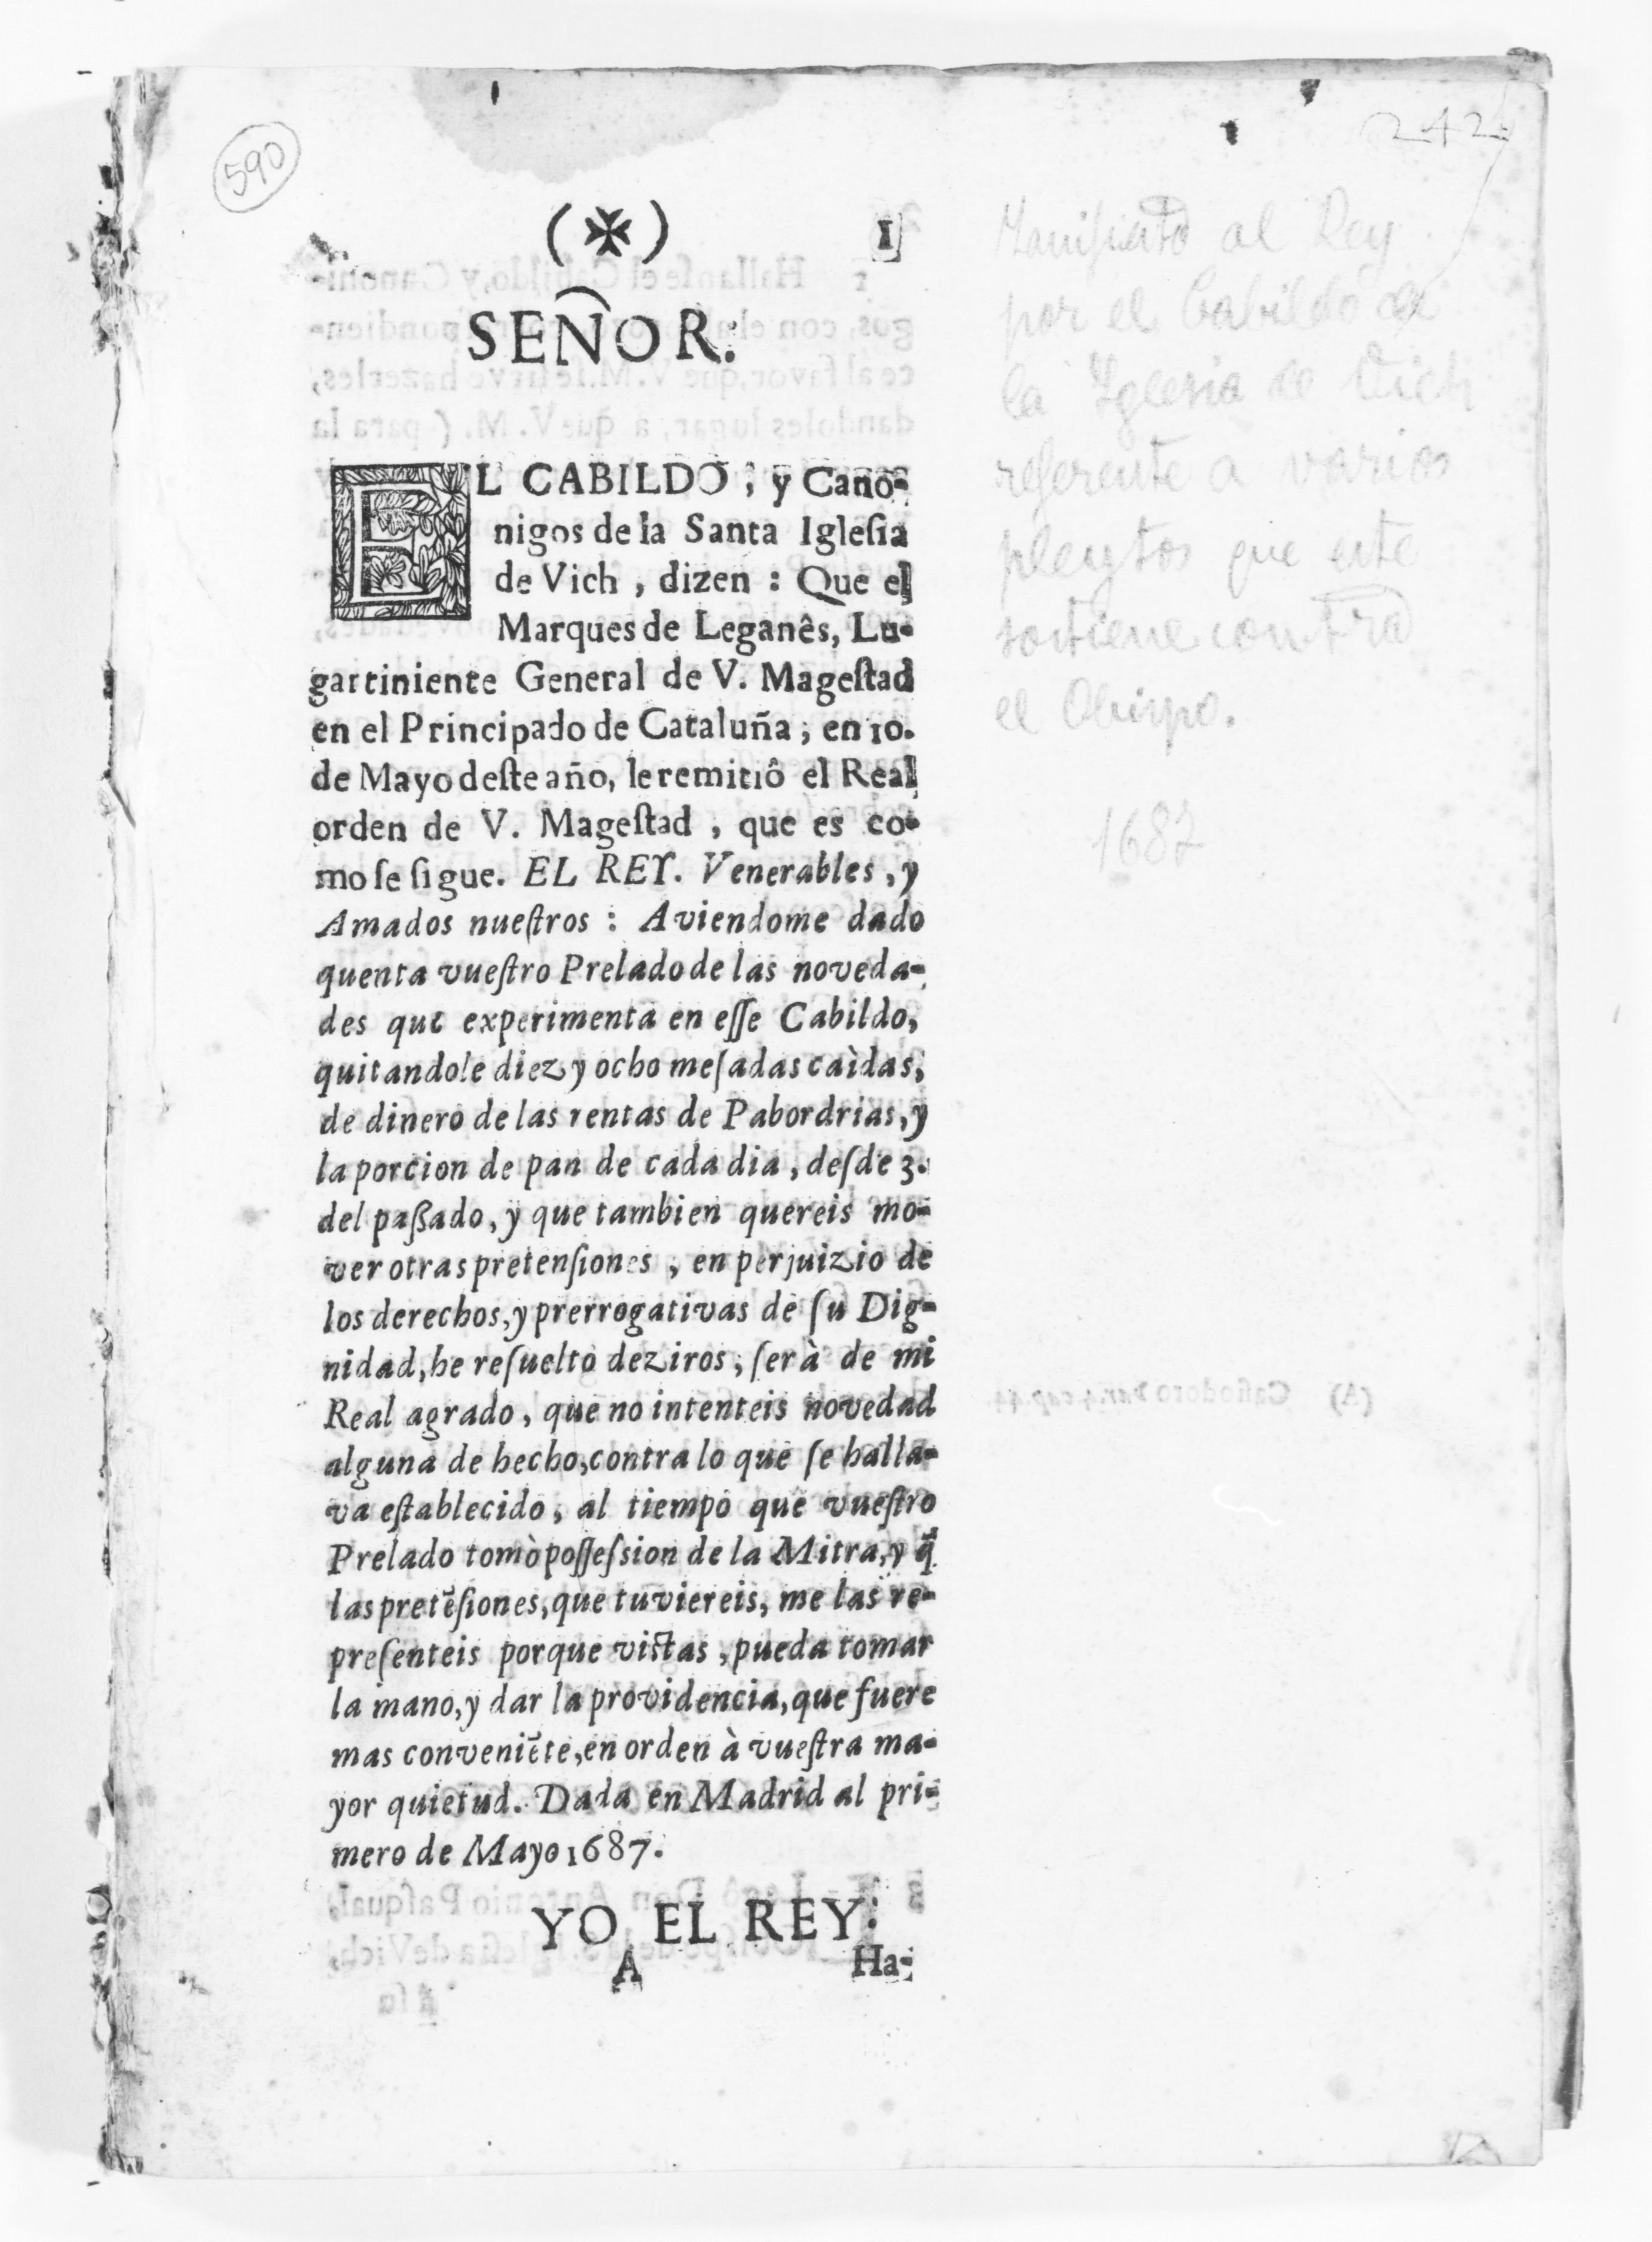 590
242
( ✠ )
1
SEÑOR:
EL CABILDO, y Cano-
nigos de la Santa Iglesia
de Vich, dizen: Que el
Marques de Leganês, Lu-
gartiniente General de V. Magestad
en el Principado de Cataluña; en 10.
de Mayo deste año, le remitiô el Real
orden de V. Magestad, que es co-
mo se sigue. EL REY. Venerables, y
Amados nuestros: Aviendome dado
quenta vuestro Prelado de las noveda-
des que experimenta en esse Cabildo,
quitandole diez y ocho mesadas caìdas,
de dinero de las rentas de Pabordrias, y
la porcion de pan de cada dia, desde 3.
del passado, y que tambien quereis mo-
ver otras pretensiones, en perjuizio de
los derechos, y prerrogativas de su Dig-
nidad, he resuelto deziros, serà de mi
Real agrado, que no intenteis novedad
alguna de hecho, contra lo que se halla-
va establecido, al tiempo que vuestro
Prelado tomò possession de la Mitra, y q̃
las pretẽsiones, que tuviereis, me las re-
presenteis porque vistas, pueda tomar
la mano, y dar la providencia, que fuere
mas conveniẽte, en orden à vuestra ma-
yor quietud. Dada en Madrid al pri-
mero de Mayo 1687.
YO EL REY:
A
Ha-
Manifiesto al Rey
por el Cabildo de
la Iglesia de Vich
referente a varios
pleytos que este
sostiene contra
el Obispo.
1687